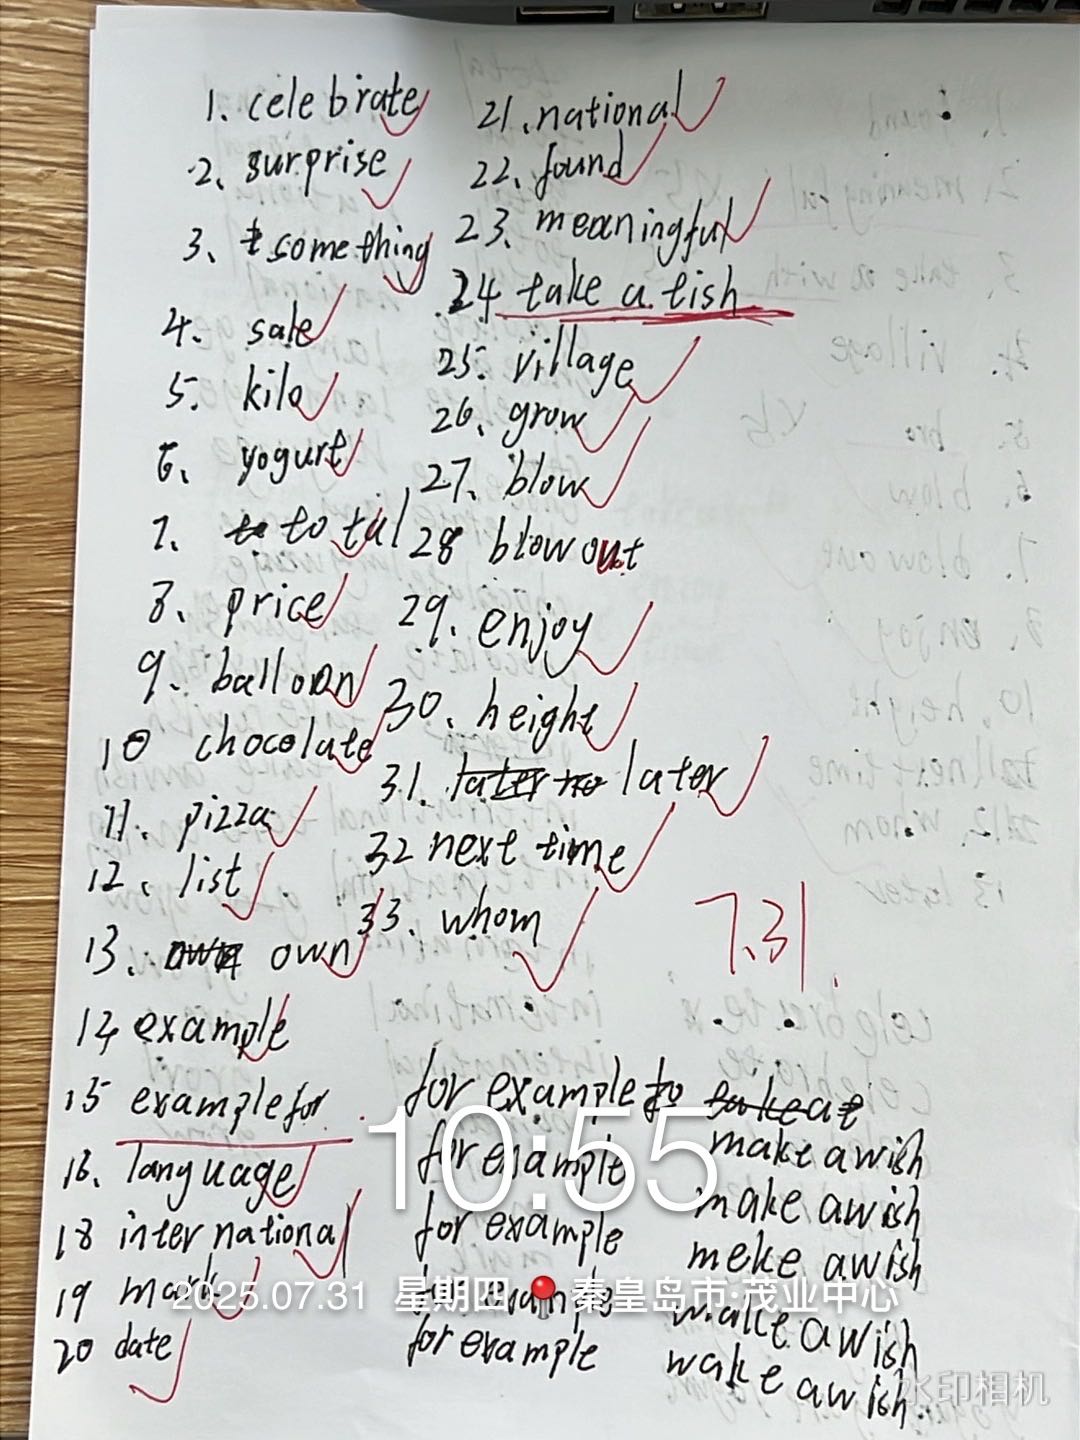 1. celebrate
2. surprise
3. something
4. sale
5. kilo
6. yogurt
7. total
8. price
9. balloon
10 chocolate
11. pizza
12. list
13. own
14 example
15 example for
16. language
18 international
19 mark
20 date
21. national
22. found
23. meaningful
24 take a tish
25. village
26. grow
27. blow
28 blow out
29. enjoy
30. height
31. later
32 next time
33. whom
7.31.
for example
for example
for example
for example
for example
make a wish
make a wish
meke a wish
make a wish
wake a wish
10:55
2025.07.31 星期四 秦皇岛市·茂业中心
水印相机